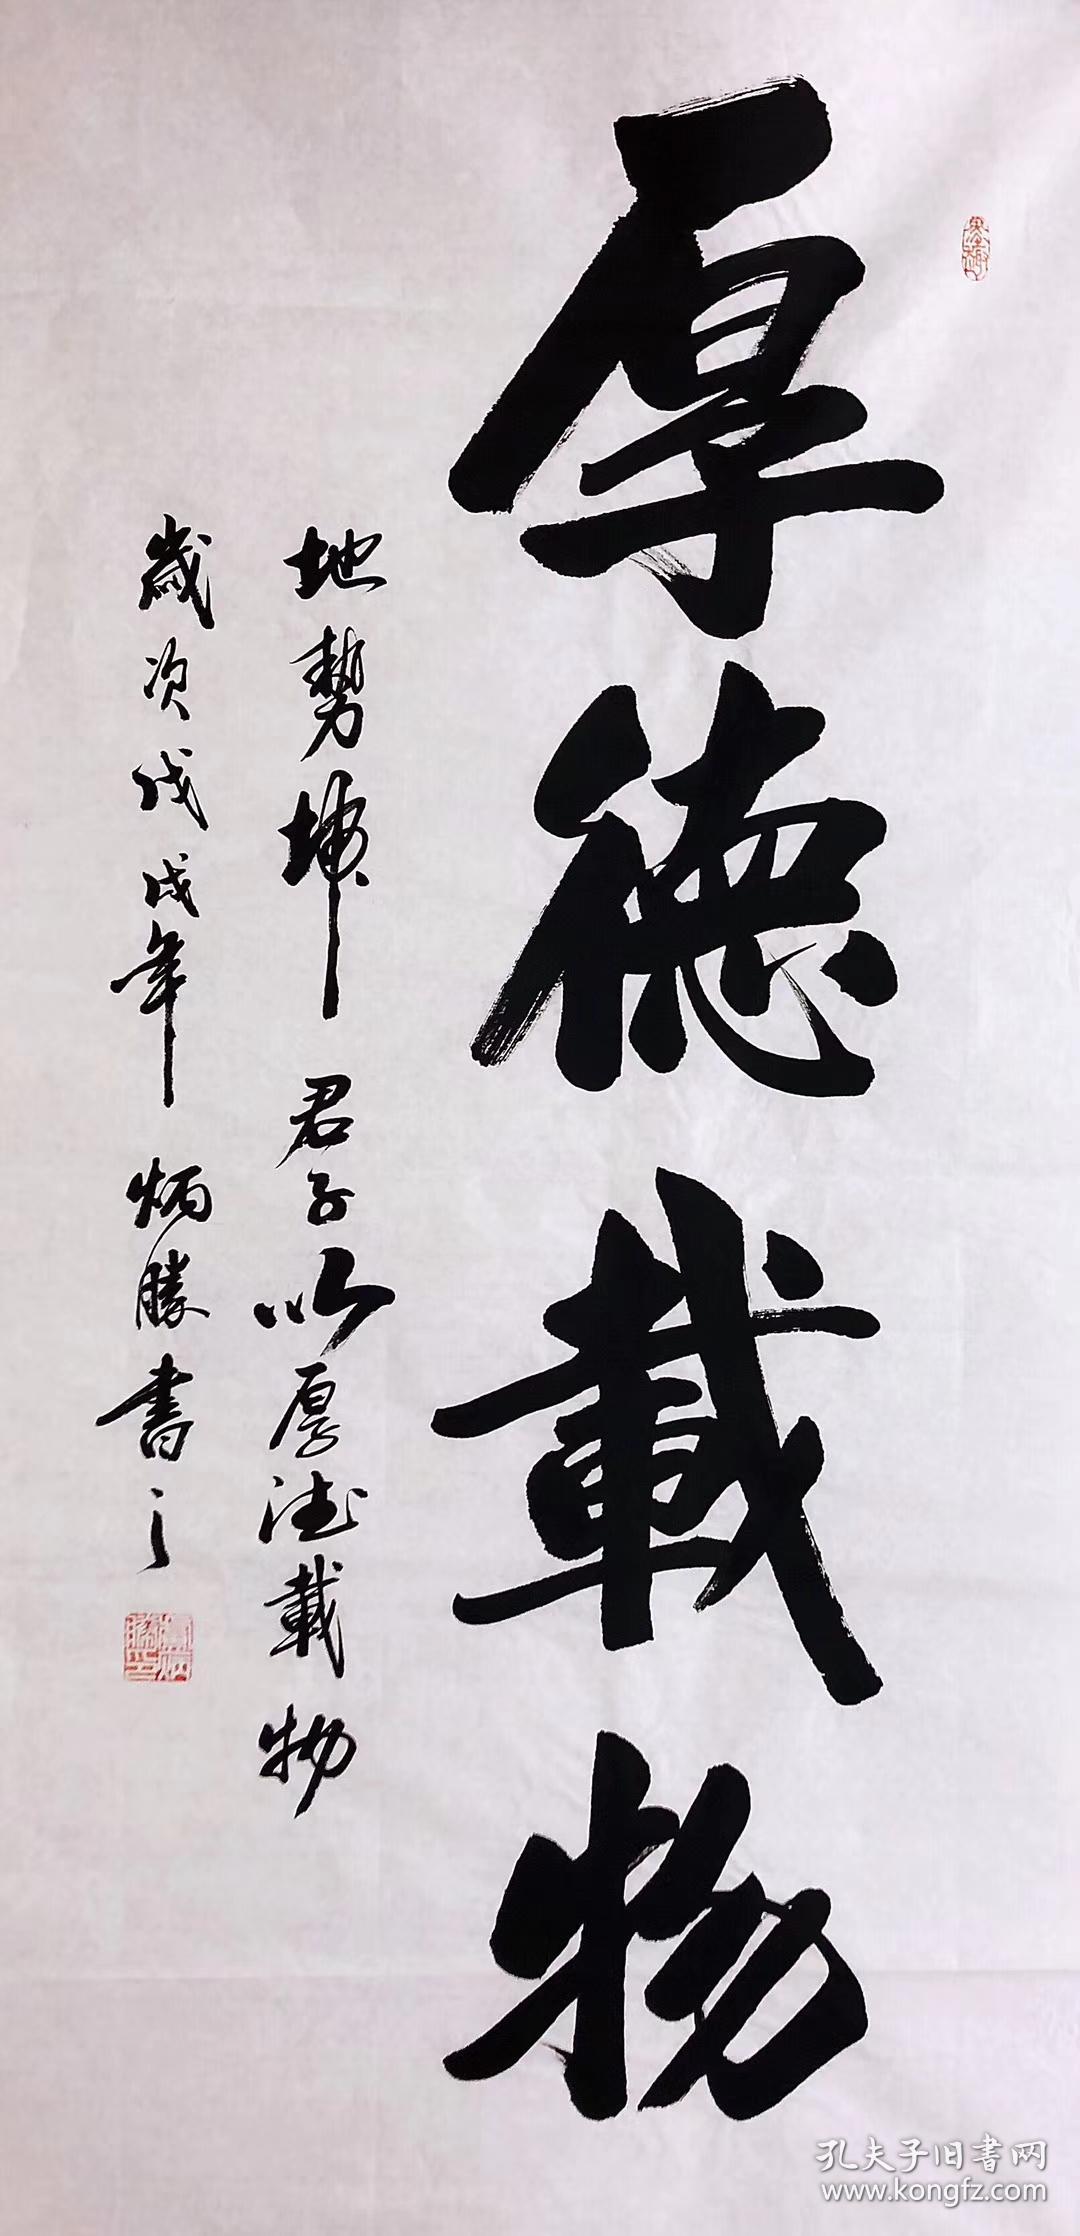 厚德載物
地勢坤 君子以厚德載物
歲次戊戌年 炳勝書之
孔夫子旧书网
www.kongfz.com